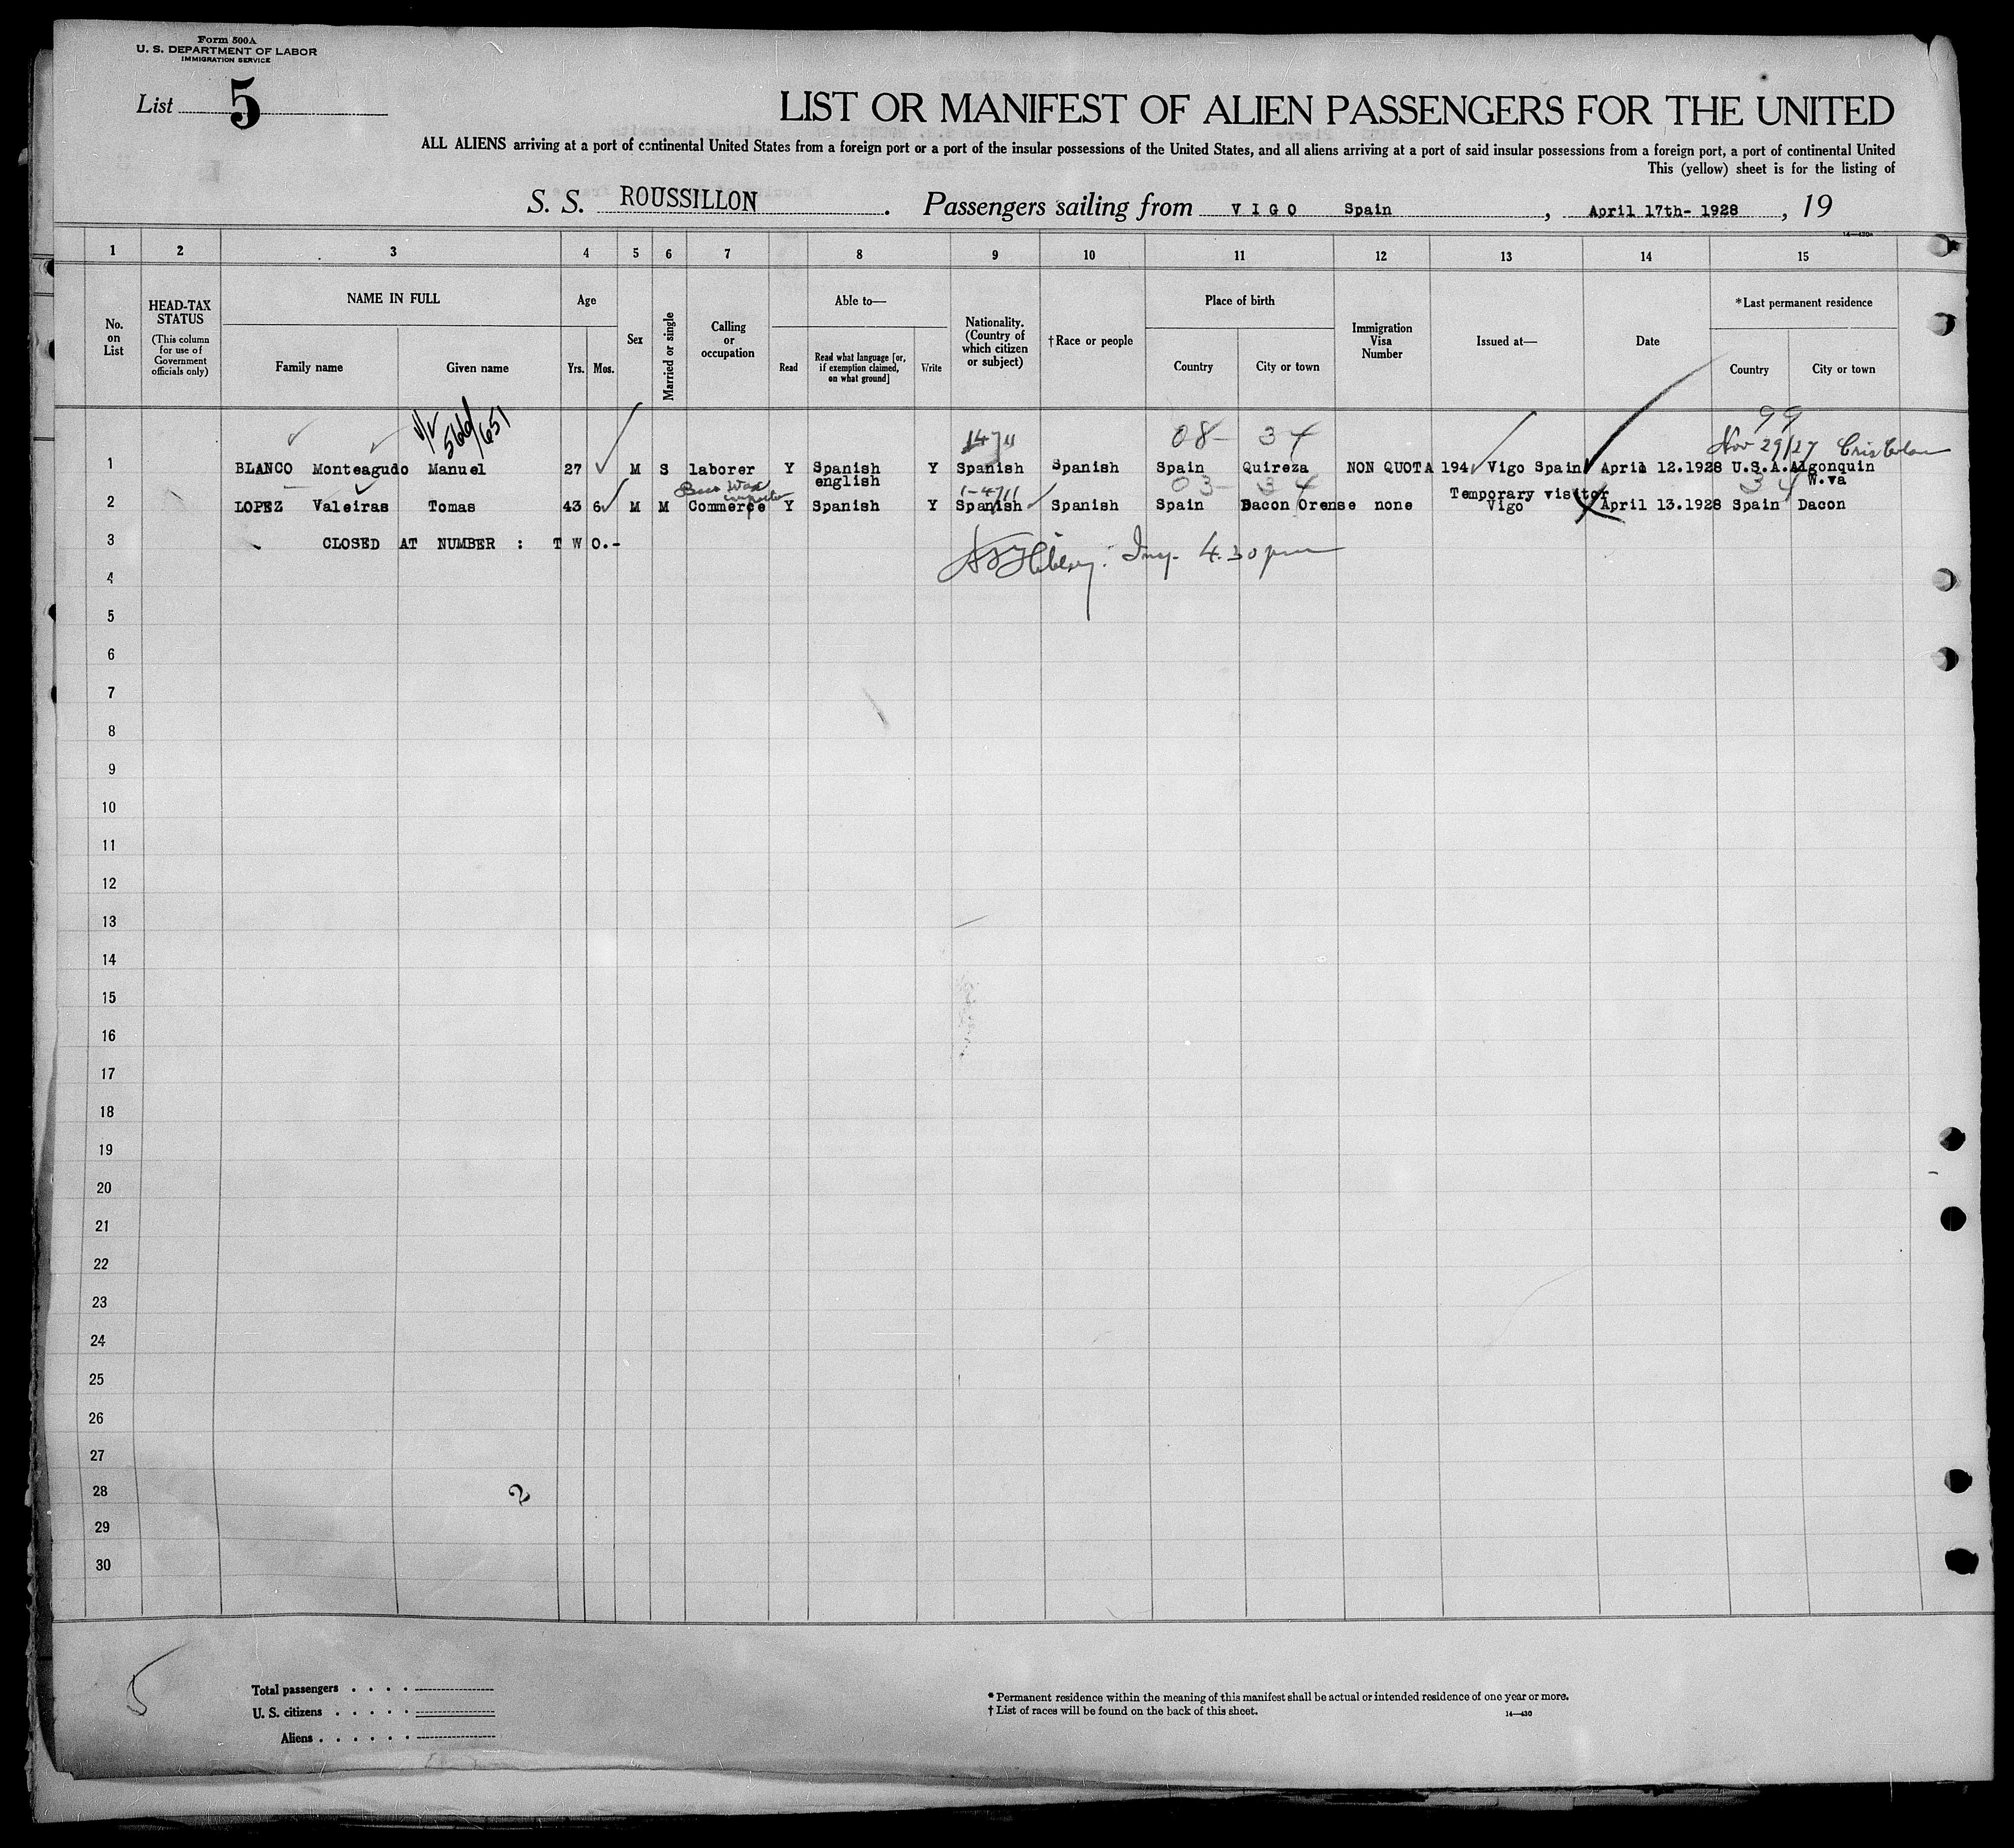 Form 500A
U. S. DEPARTMENT OF LABOR
IMMIGRATION SERVICE
List 5
LIST OR MANIFEST OF ALIEN PASSENGERS FOR THE UNITED
ALL ALIENS arriving at a port of continental United States from a foreign port or a port of the insular possessions of the United States, and all aliens arriving at a port of said insular possessions from a foreign port, a port of continental United
This (yellow) sheet is for the listing of
S. S. ROUSSILLON . Passengers sailing from VIGO Spain , April 17th- 1928 , 19
14—430a
1 2 3 4 5 6 7 8 9 10 11 12 13 14 15
No. on List
HEAD-TAX STATUS
(This column for use of Government officials only)
NAME IN FULL
Family name Given name
Age
Yrs. Mos.
Sex
Married or single
Calling or occupation
Able to—
Read
Read what language [or, if exemption claimed, on what ground]
Write
Nationality. (Country of which citizen or subject)
†Race or people
Place of birth
Country City or town
Immigration Visa Number
Issued at—
Date
*Last permanent residence
Country City or town
566/651
1471 08- 34 99
Nov 29/27 Cristobal
1 BLANCO Monteagudo Manuel 27 M S laborer Y Spanish Y Spanish Spanish Spain Quireza NON QUOTA 194 Vigo Spain April 12.1928 U.S.A. Algonquin
english W.va
importer 1-4711 03- 34 Temporary visitor 34
2 LOPEZ Valeiras Tomas 43 6 M M Commerce Y Spanish Y Spanish Spanish Spain Dacon Orense none Vigo April 13.1928 Spain Dacon
3 CLOSED AT NUMBER : T W O.-
Insp. 4.30 pm
4
5
6
7
8
9
10
11
12
13
14
15
16
17
18
19
20
21
22
23
24
25
26
27
28 2
29
30
5
Total passengers . . . .
U. S. citizens . . . . .
Aliens . . . . . .
* Permanent residence within the meaning of this manifest shall be actual or intended residence of one year or more.
† List of races will be found on the back of this sheet.
14—430